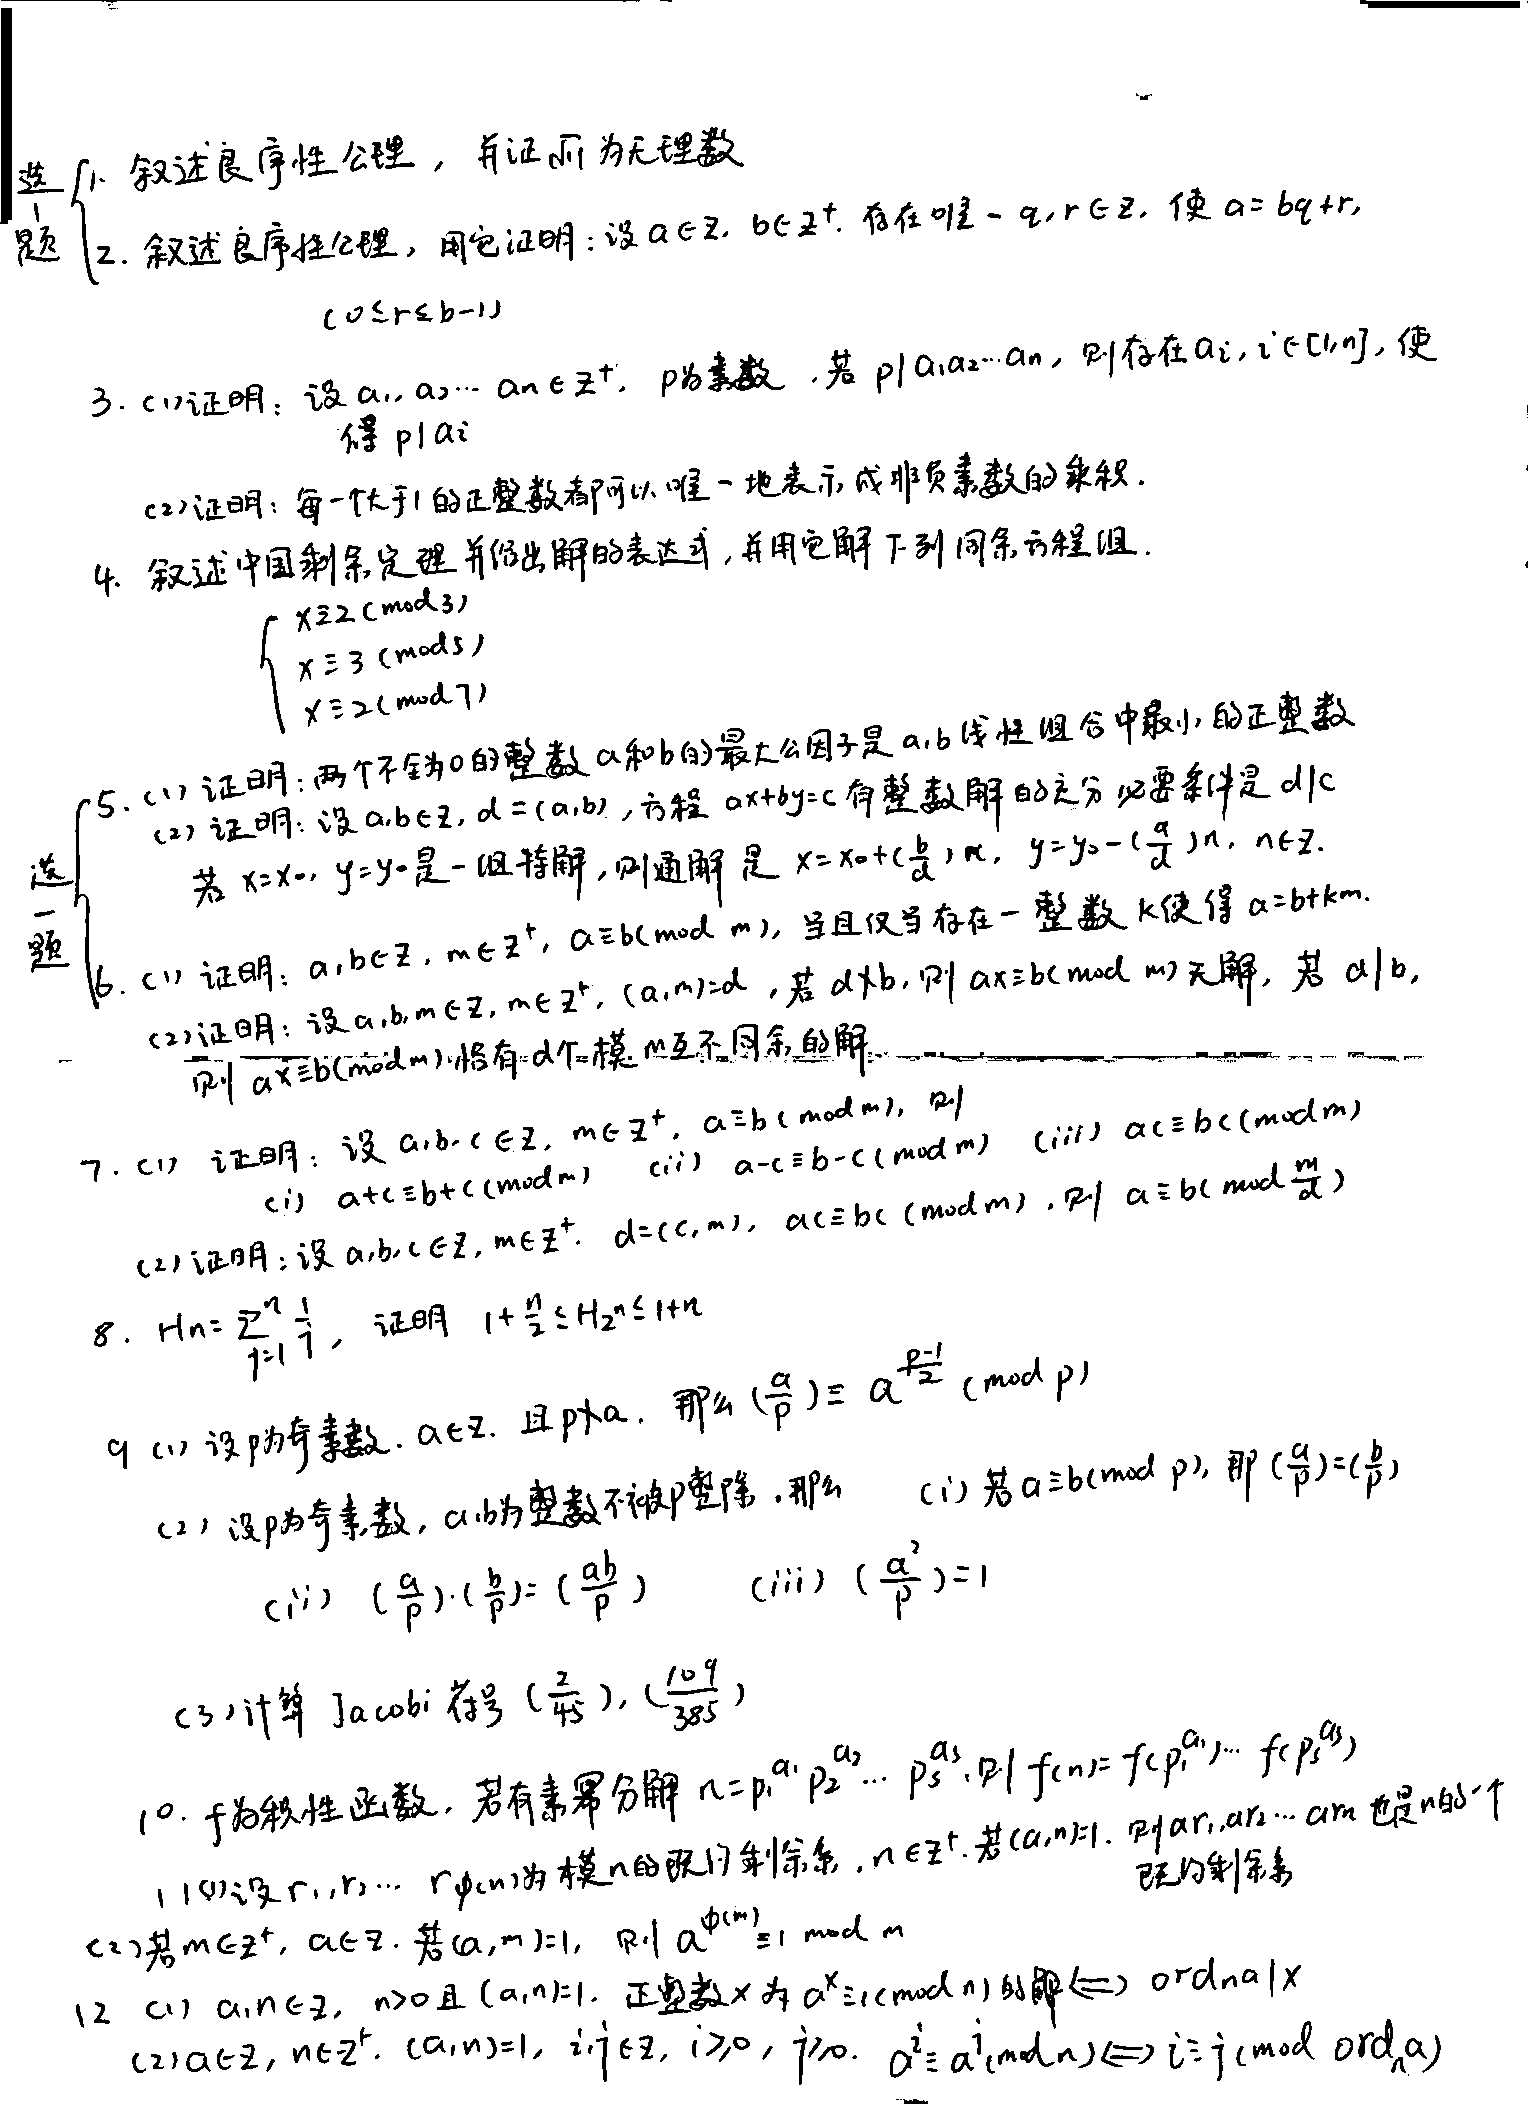 选一题
1. 叙述良序性公理，并证√2为无理数
2. 叙述良序性公理，用它证明：设 a∈Z, b∈Z⁺. 存在唯一 q, r∈Z, 使 a=bq+r,
(0≤r≤b-1)
3. (1)证明：设 a₁, a₂…an∈Z⁺, p为素数，若 p|a₁a₂…an, 则存在ai, i∈[1,n], 使
得 p|ai
(2)证明：每一个大于1的正整数都可以唯一地表示成非负素数的乘积.
4. 叙述中国剩余定理并给出解的表达式，并用它解下列同余方程组.
x≡2(mod3)
x≡3(mod5)
x≡2(mod7)
选一题
5. (1) 证明：两个不全为0的整数a和b的最大公因子是a,b线性组合中最小的正整数
(2) 证明：设a,b∈Z, d=(a,b), 方程 ax+by=c有整数解的充分必要条件是 d|c
若 x=x₀, y=y₀是一组特解，则通解是 x=x₀+(b/d)n, y=y₀-(a/d)n, n∈Z.
6. (1) 证明：a,b∈Z, m∈Z⁺, a≡b(mod m), 当且仅当存在一整数k使得 a=b+km.
(2)证明：设a,b,m∈Z, m∈Z⁺, (a,m)=d, 若 d∤b, 则 ax≡b(mod m)无解，若 d|b,
则 ax≡b(modm)恰有d个模m互不同余的解
7. (1) 证明：设 a,b,c∈Z, m∈Z⁺, a≡b(modm), 则
(i) a+c≡b+c(modm) (ii) a-c≡b-c(modm) (iii) ac≡bc(modm)
(2)证明：设a,b,c∈Z, m∈Z⁺. d=(c,m), ac≡bc(modm), 则 a≡b(mod m/d)
8. Hn=∑ⁿⱼ₌₁ 1/j, 证明 1+n/2≤H₂ⁿ≤1+n
9 (1) 设p为奇素数. a∈Z. 且p∤a. 那么(a/p)≡a^((p-1)/2) (mod p)
(2) 设p为奇素数，a,b为整数不被p整除，那么 (i) 若a≡b(mod p), 那(a/p)=(b/p)
(ii) (a/p)·(b/p)=(ab/p) (iii) (a²/p)=1
(3)计算 Jacobi 符号 (2/45), (109/385)
10. f为积性函数，若有素幂分解 n=p₁^a₁ p₂^a₂…ps^as, 则f(n)=f(p₁^a₁)…f(ps^as)
11(1)设r₁,r₂…rφ(n)为模n的既约剩余系, n∈Z⁺. 若(a,n)=1. 则ar₁,ar₂…arn也是n的一个
既约剩余系
(2)若m∈Z⁺, a∈Z. 若(a,m)=1, 则 a^φ(m)≡1 mod m
12 (1) a,n∈Z, n>0且(a,n)=1. 正整数x为 a^x≡1(mod n)的解⟺ ordna|x
(2)a∈Z, n∈Z⁺. (a,n)=1, i,j∈Z, i≥0, j≥0. a^i≡a^j(mod n)⟺ i≡j(mod ordna)